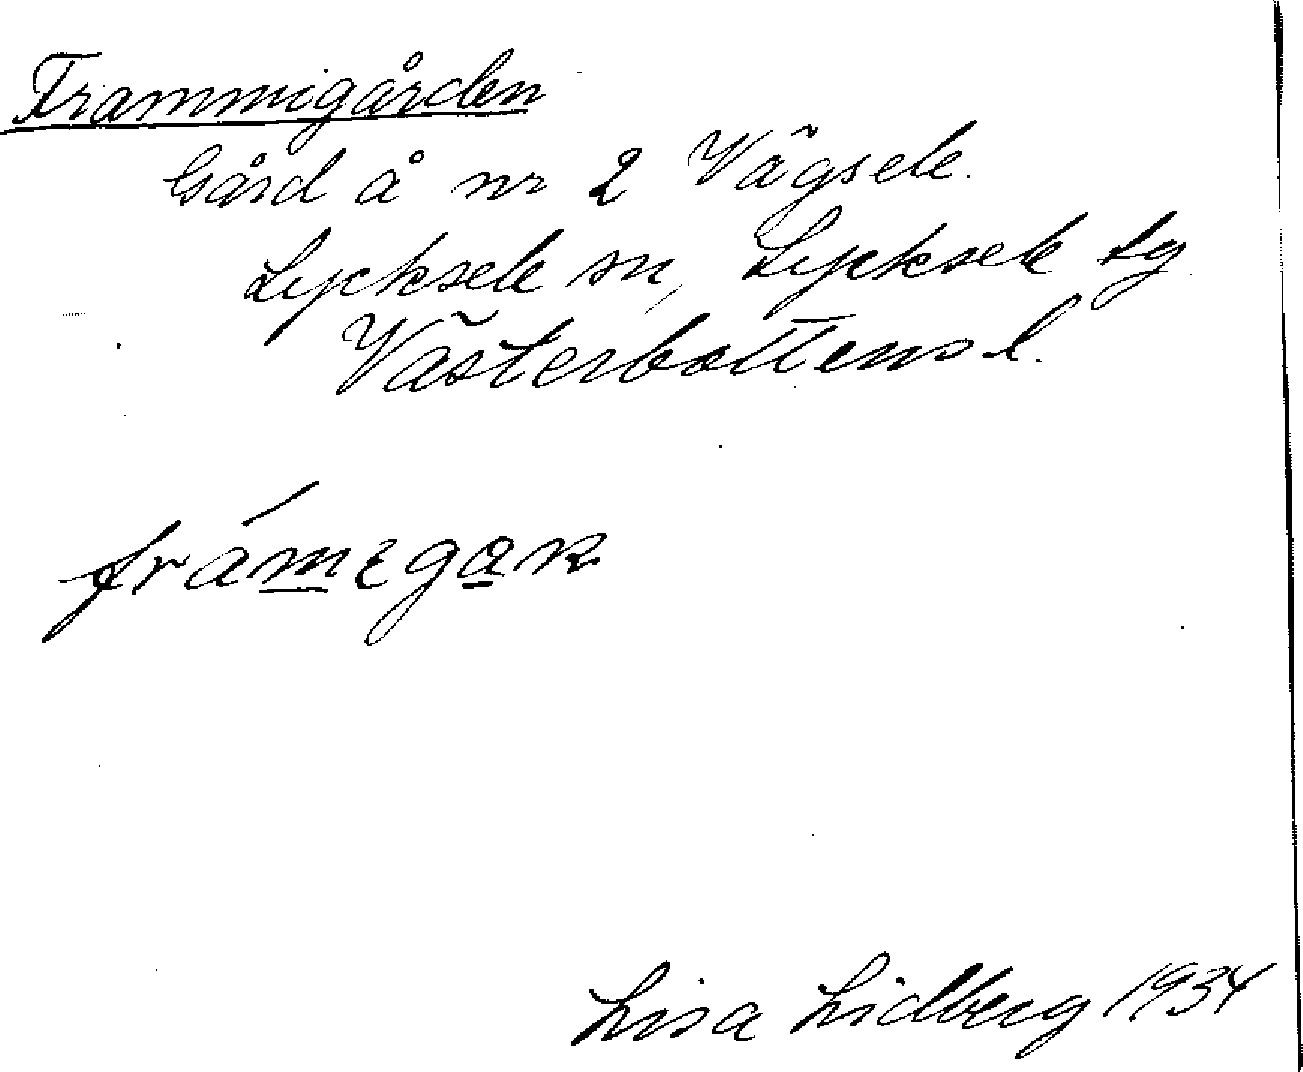 Frammigården
Gård å nr 2 Vägsele.
Lycksele sn, Lycksele lg
Västerbottens l.
frámɛgaɴ
Lisa Lidberg 1934